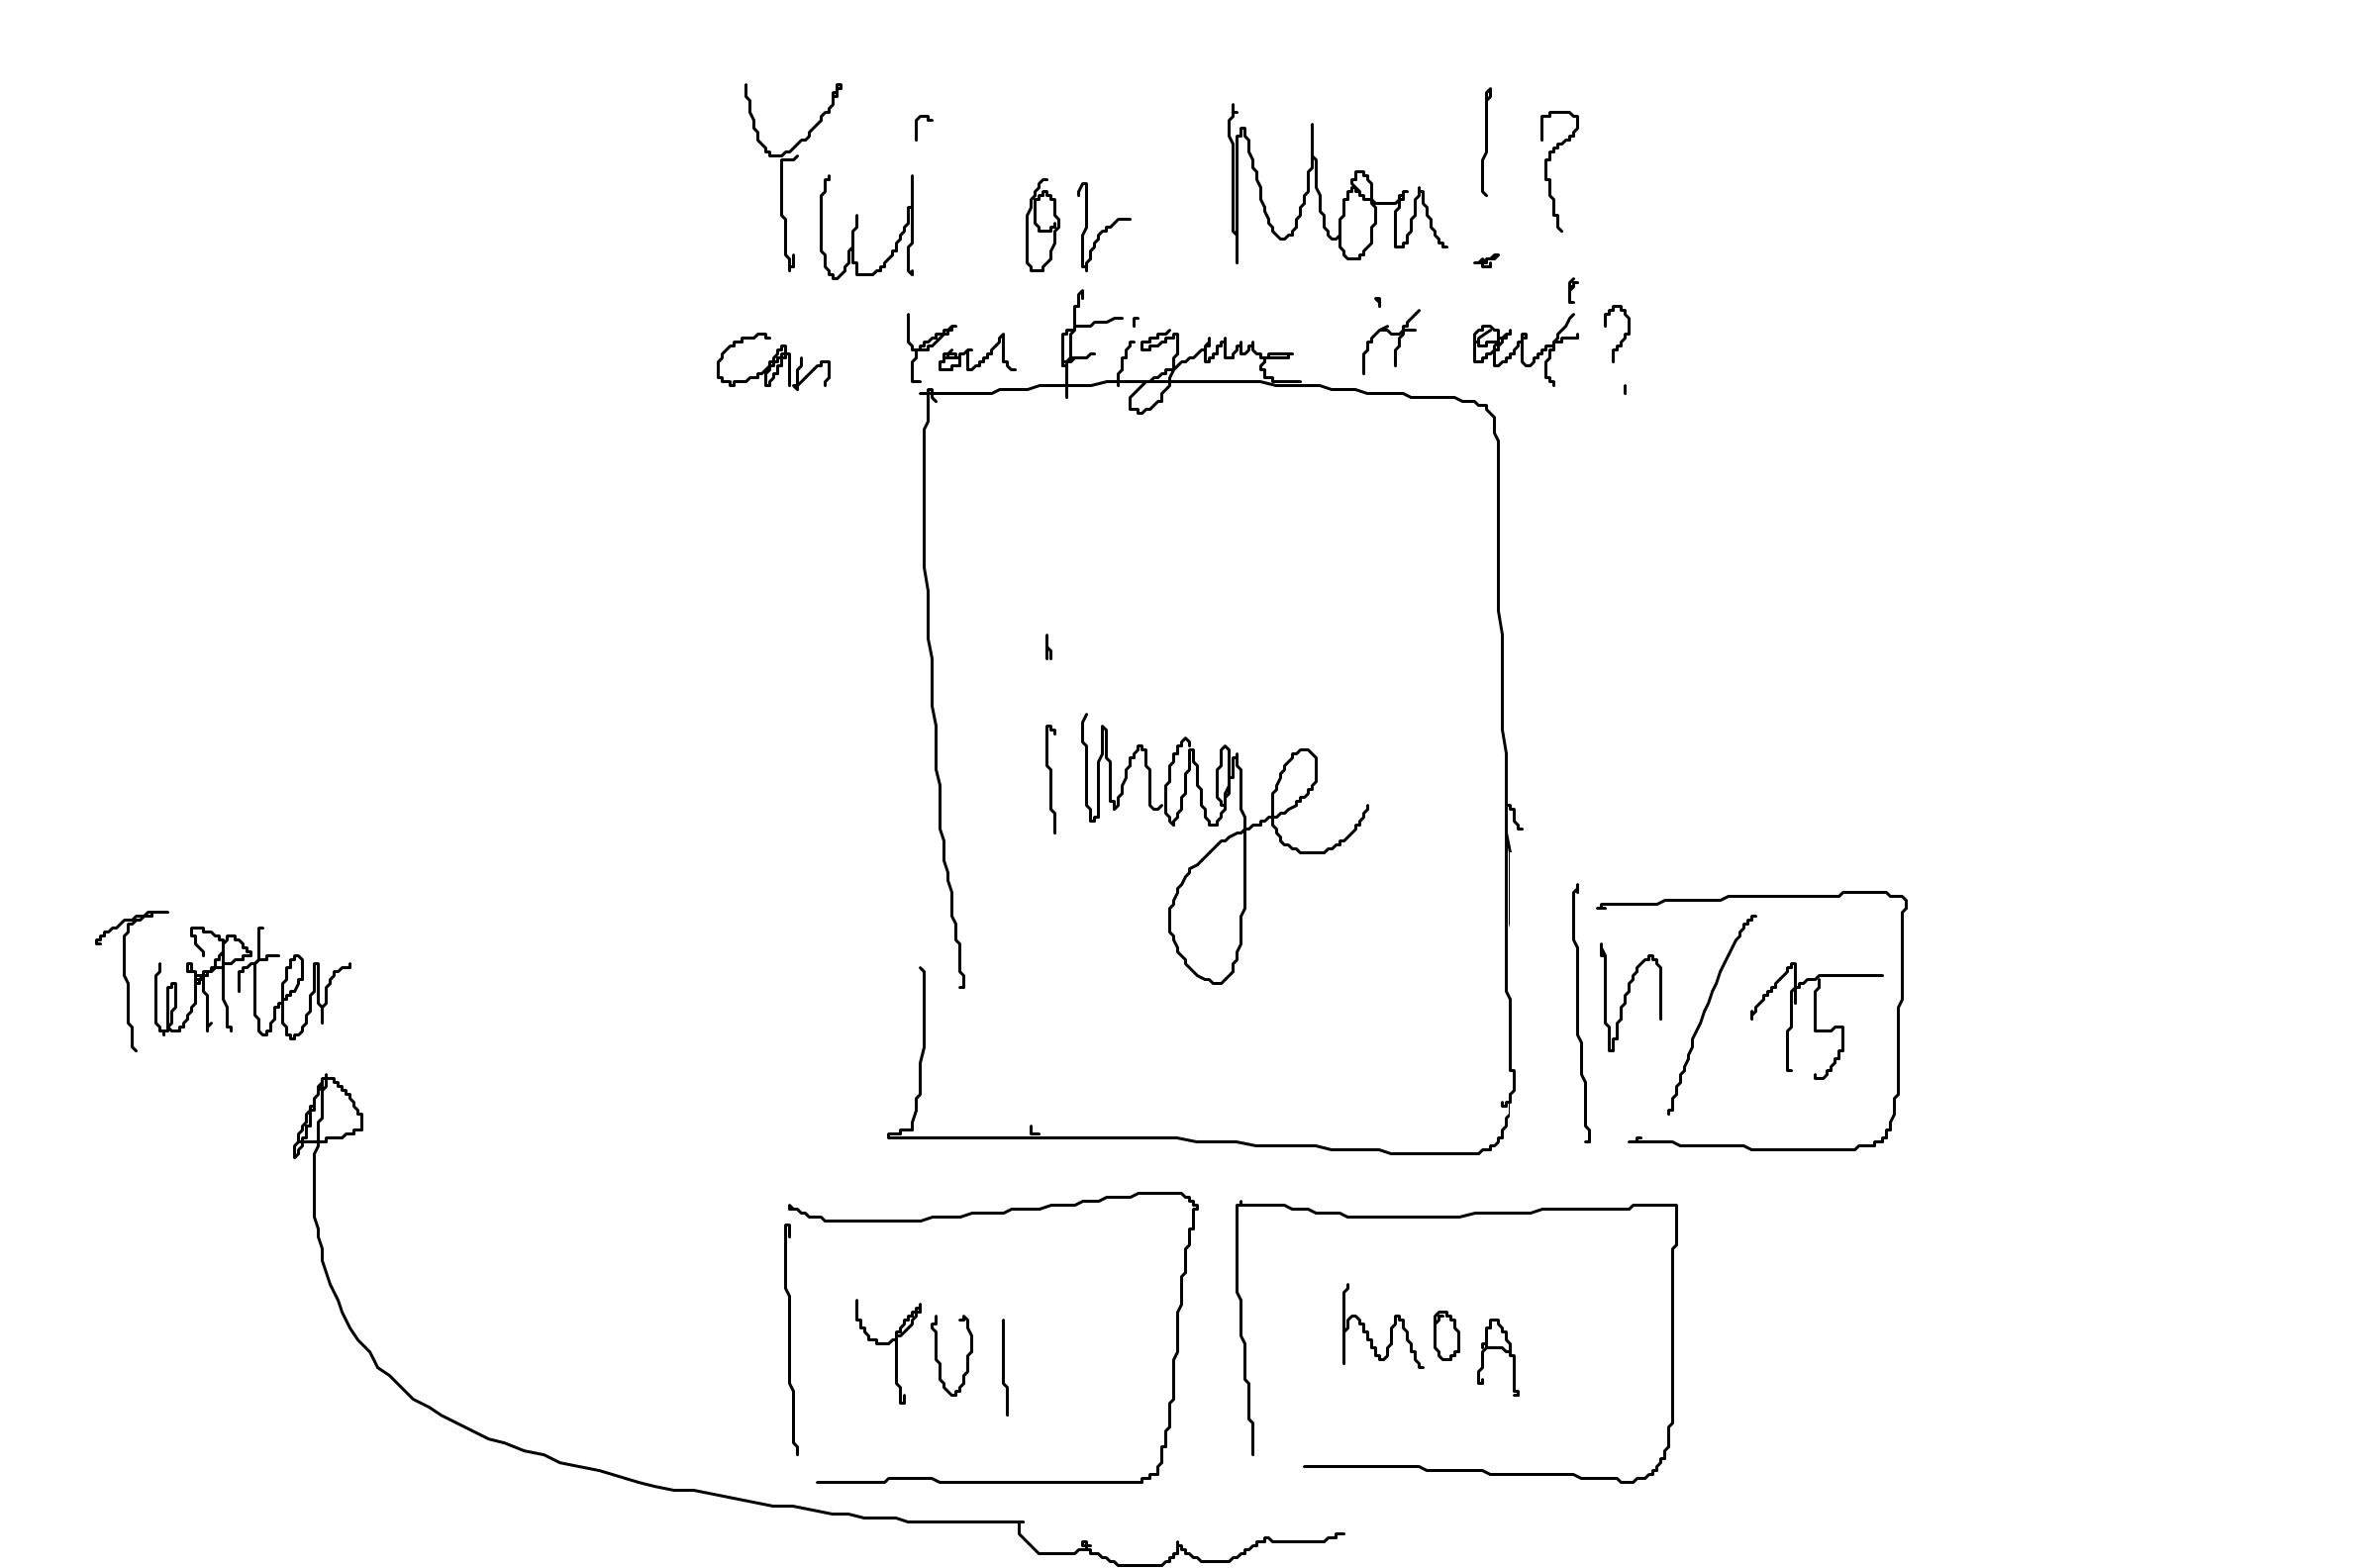 Yui or Moa!?
can you figure it out?
image
Twitter
n/15
YUI
MOA